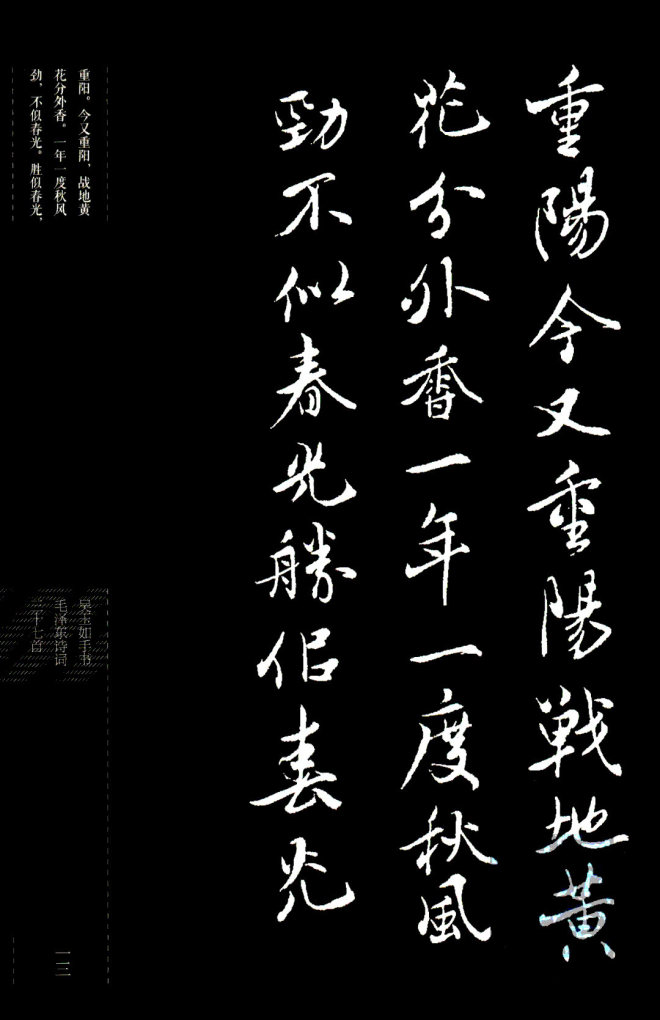 重陽今又重陽戰地黃
花分外香一年一度秋風
勁不似春光勝佀春光
重阳。今又重阳，战地黄
花分外香。一年一度秋风
劲，不似春光。胜似春光，
吴玉如手书
毛泽东诗词
三十七首
一三